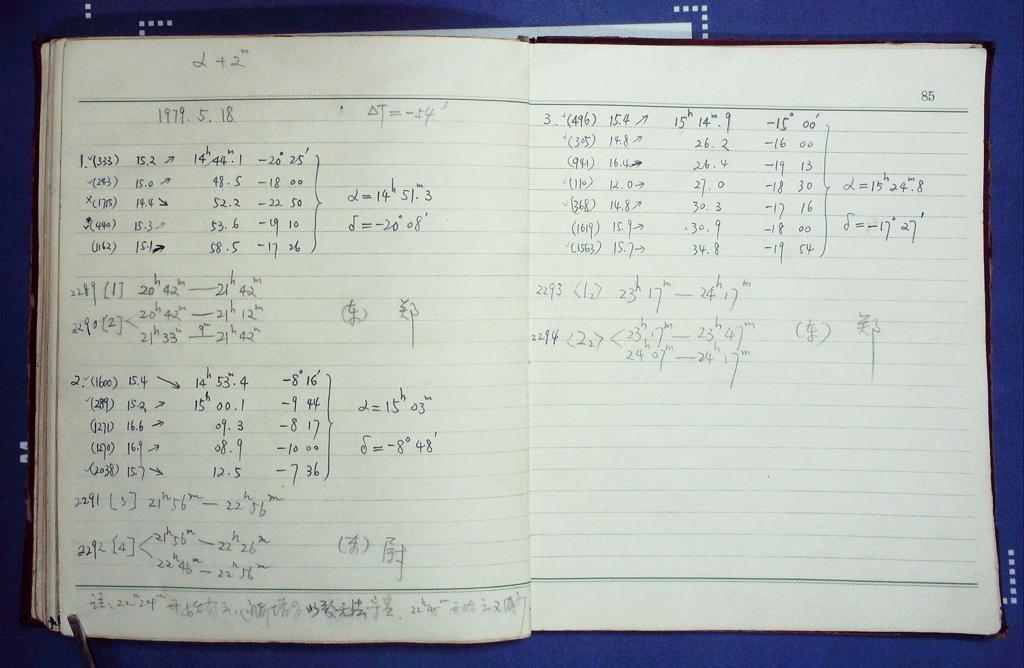 α + 2ᵐ
1979. 5. 18 ΔT = -54ˢ
1. ✓(333) 15.2 ↗ 14ʰ 44ᵐ.1 -20° 25′
✓(243) 15.0 ↗ 48.5 -18 00
×(1715) 14.4 ↘ 52.2 -22 50 α = 14ʰ 51ᵐ.3
(440) 15.3 ↗ 53.6 -19 10 δ = -20° 08′
(1162) 15.1 58.5 -17 26
2289 [1] 20ʰ 42ᵐ — 21ʰ 42ᵐ
2290 [2] < 20ʰ 42ᵐ — 21ʰ 12ᵐ (东) 郑
21ʰ 33ᵐ 9ᵐ — 21ʰ 42ᵐ
2. ✓(1600) 15.4 ↘ 14ʰ 53ᵐ.4 -8° 16′
✓(289) 15.2 ↗ 15ʰ 00.1 -9 44 α = 15ʰ 03ᵐ
(1271) 16.6 ↗ 09.3 -8 17
(1270) 16.9 ↗ 08.9 -10 00 δ = -8° 48′
✓(2038) 15.7 ↘ 12.5 -7 36
2291 [3] 21ʰ 56ᵐ — 22ʰ 56ᵐ
2292 [4] < 21ʰ 56ᵐ — 22ʰ 26ᵐ (东) 尉
22ʰ 46ᵐ — 22ʰ 56ᵐ
注: 22ʰ 24ᵐ 开始有云, 无法导星. 22ʰ 45ᵐ 开始
85
3. ✓(496) 15.4 ↗ 15ʰ 14ᵐ.9 -15° 00′
✓(305) 14.8 ↗ 26.2 -16 00
✓(941) 16.4 → 26.4 -19 13
✓(110) 12.0 ↗ 27.0 -18 30 α = 15ʰ 24ᵐ.8
✓(368) 14.8 ↗ 30.3 -17 16
(1619) 15.9 → 30.9 -18 00 δ = -17° 27′
✓(1563) 15.7 → 34.8 -19 54
2293 <1₂> 23ʰ 17ᵐ — 24ʰ 17ᵐ
2294 <2₂> < 23ʰ 17ᵐ — 23ʰ 47ᵐ (东) 郑
24ʰ 07ᵐ — 24ʰ 17ᵐ